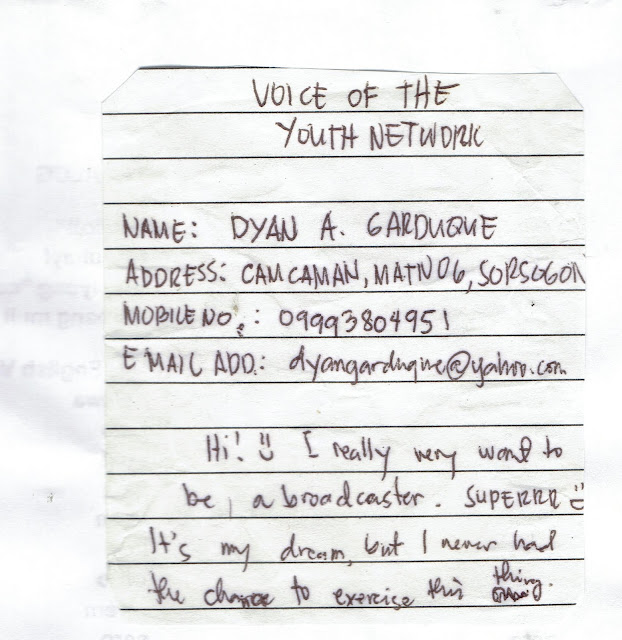 VOICE OF THE
YOUTH NETWORK
NAME: DYAN A. GARDUQUE
ADDRESS: CAMCAMAN, MATNOG, SORSOGON
MOBILE NO.: 09993804951
E MAIL ADD.: dyangarduque@yahoo.com
Hi! I really very want to
be, a broadcaster. SUPERRR
It's my dream, but I never had
the chance to exercise this thing.